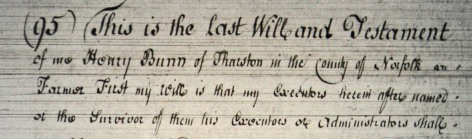 (95) This is the Last Will and Testament
of me Henry Bunn of Tharston in the County of Norfolk
Farmer First my Will is that my Executors herein after named
or the Survivor of them his Executors or Administrators shall